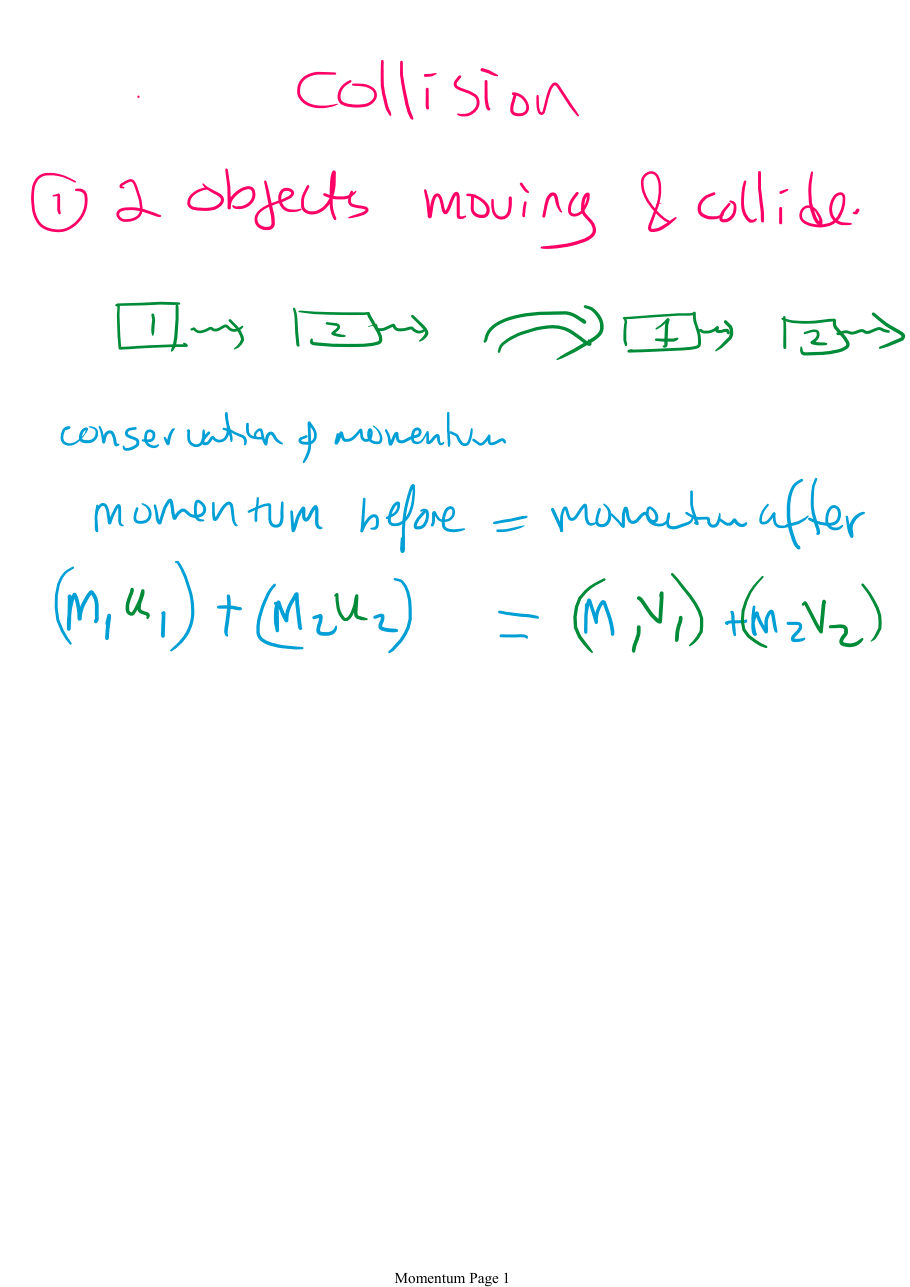 Collision
① 2 objects moving & collide.
1 2 1 2
conservation of momentum
momentum before = momentum after
(M₁u₁) + (M₂u₂) = (M₁V₁) + (M₂V₂)
Momentum Page 1